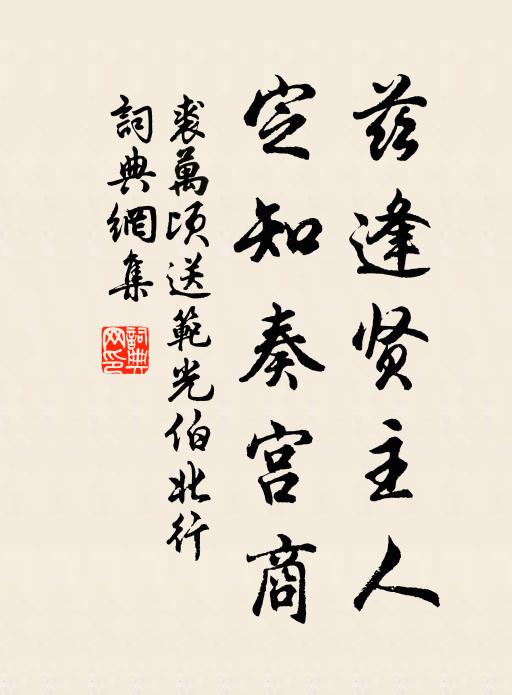 茲逢贤主人
定知奏宫商
裘萬顷送範光伯北行
詞典網集
詞典网印